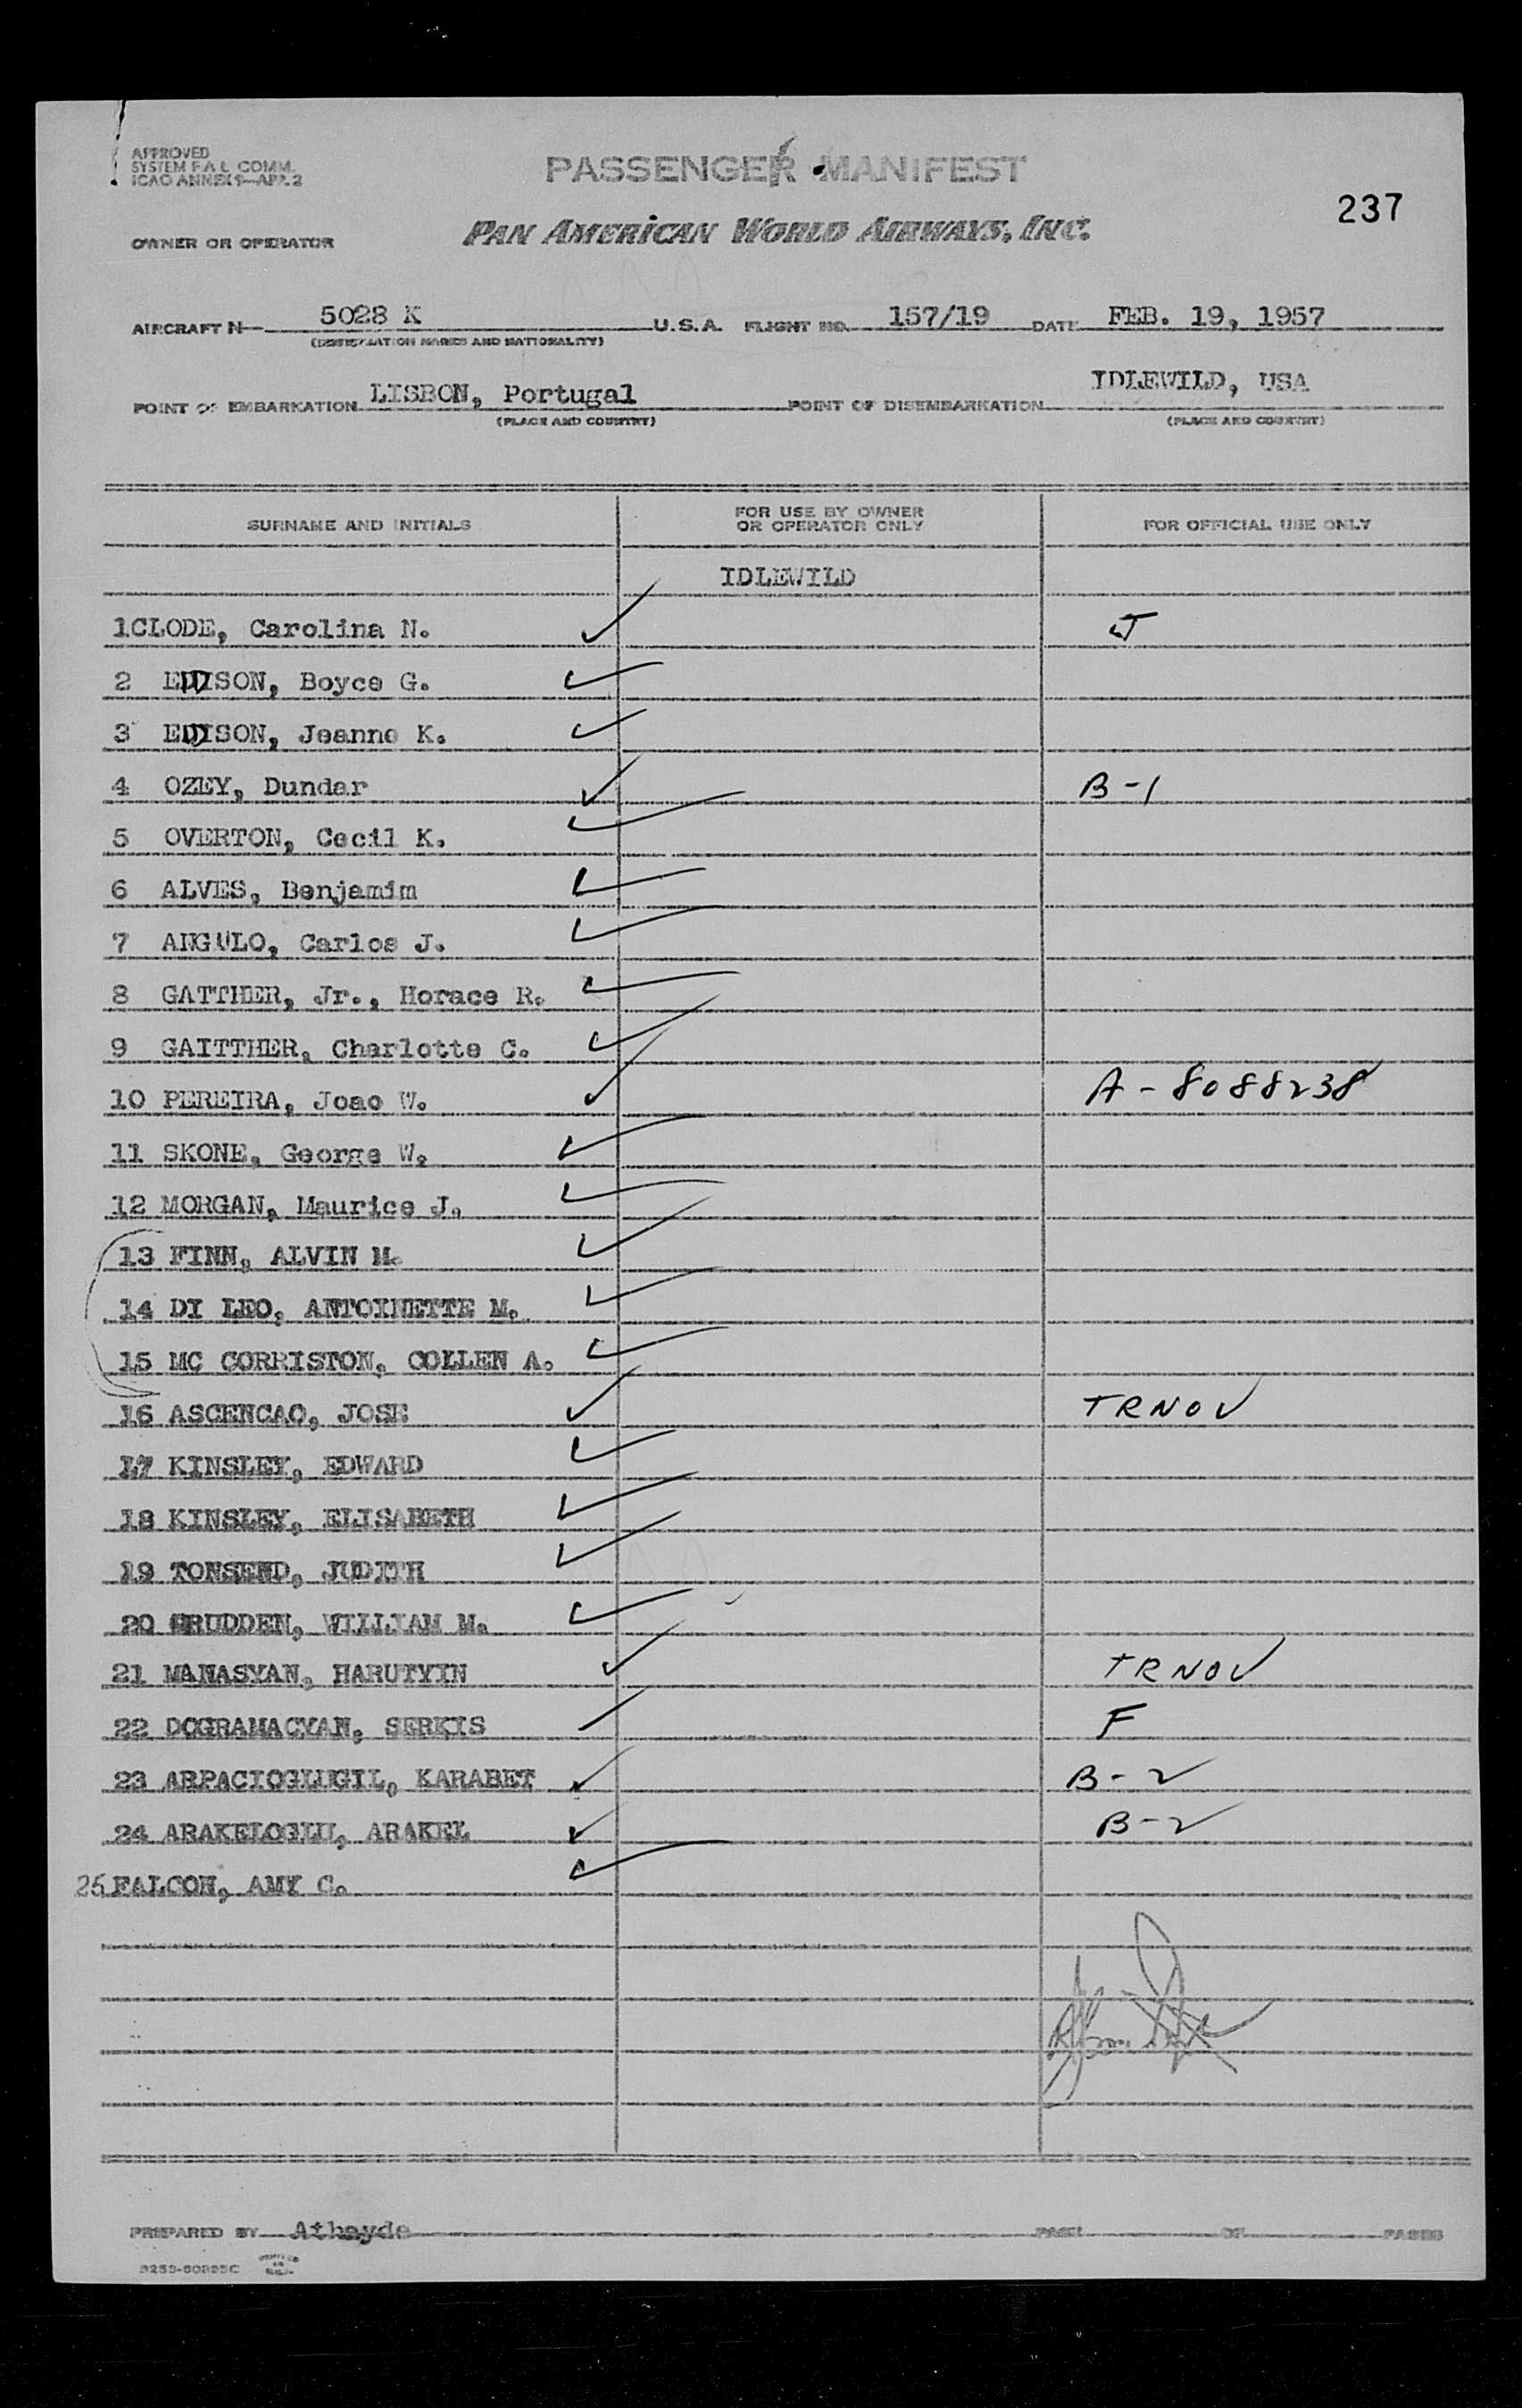 APPROVED
SYSTEM F.A.L. COMM.
ICAO ANNEX 9—APP. 2
PASSENGER MANIFEST
237
OWNER OR OPERATOR
PAN AMERICAN WORLD AIRWAYS, INC.
AIRCRAFT N 5028 K U.S.A. FLIGHT NO. 157/19 DATE FEB. 19, 1957
(REGISTRATION MARKS AND NATIONALITY)
POINT OF EMBARKATION LISBON, Portugal POINT OF DISEMBARKATION IDLEWILD, USA
(PLACE AND COUNTRY) (PLACE AND COUNTRY)
SURNAME AND INITIALS FOR USE BY OWNER OR OPERATOR ONLY FOR OFFICIAL USE ONLY
IDLEWILD
1CLODE, Carolina N.
2 EDISON, Boyce G.
3 EDISON, Jeanne K.
4 OZEY, Dundar B-1
5 OVERTON, Cecil K.
6 ALVES, Benjamim
7 ANGULO, Carlos J.
8 GATTHER, Jr., Horace R.
9 GAITTHER, Charlotte C.
10 PEREIRA, Joao W. A-8088238
11 SKONE, George W.
12 MORGAN, Maurice J.
13 FINN, ALVIN M.
14 DI LEO, ANTOINETTE M.
15 MC CORRISTON, COLLEN A.
16 ASCENCAO, JOSE TRNOV
17 KINSLEY, EDWARD
18 KINSLEY, ELISABETH
19 TONSEND, JUDITH
20 WILLIAM M.
21 MANASYAN, HARUTYIN TRNOV
22 DOGRAMACYAN, SERKIS F
23 ARPACIOGLUGIL, KARABET B-2
24 ARAKELOGLU, ARAKEL B-2
25 FALCON, AMY C.
PREPARED BY Athayde PAGE OF PAGES